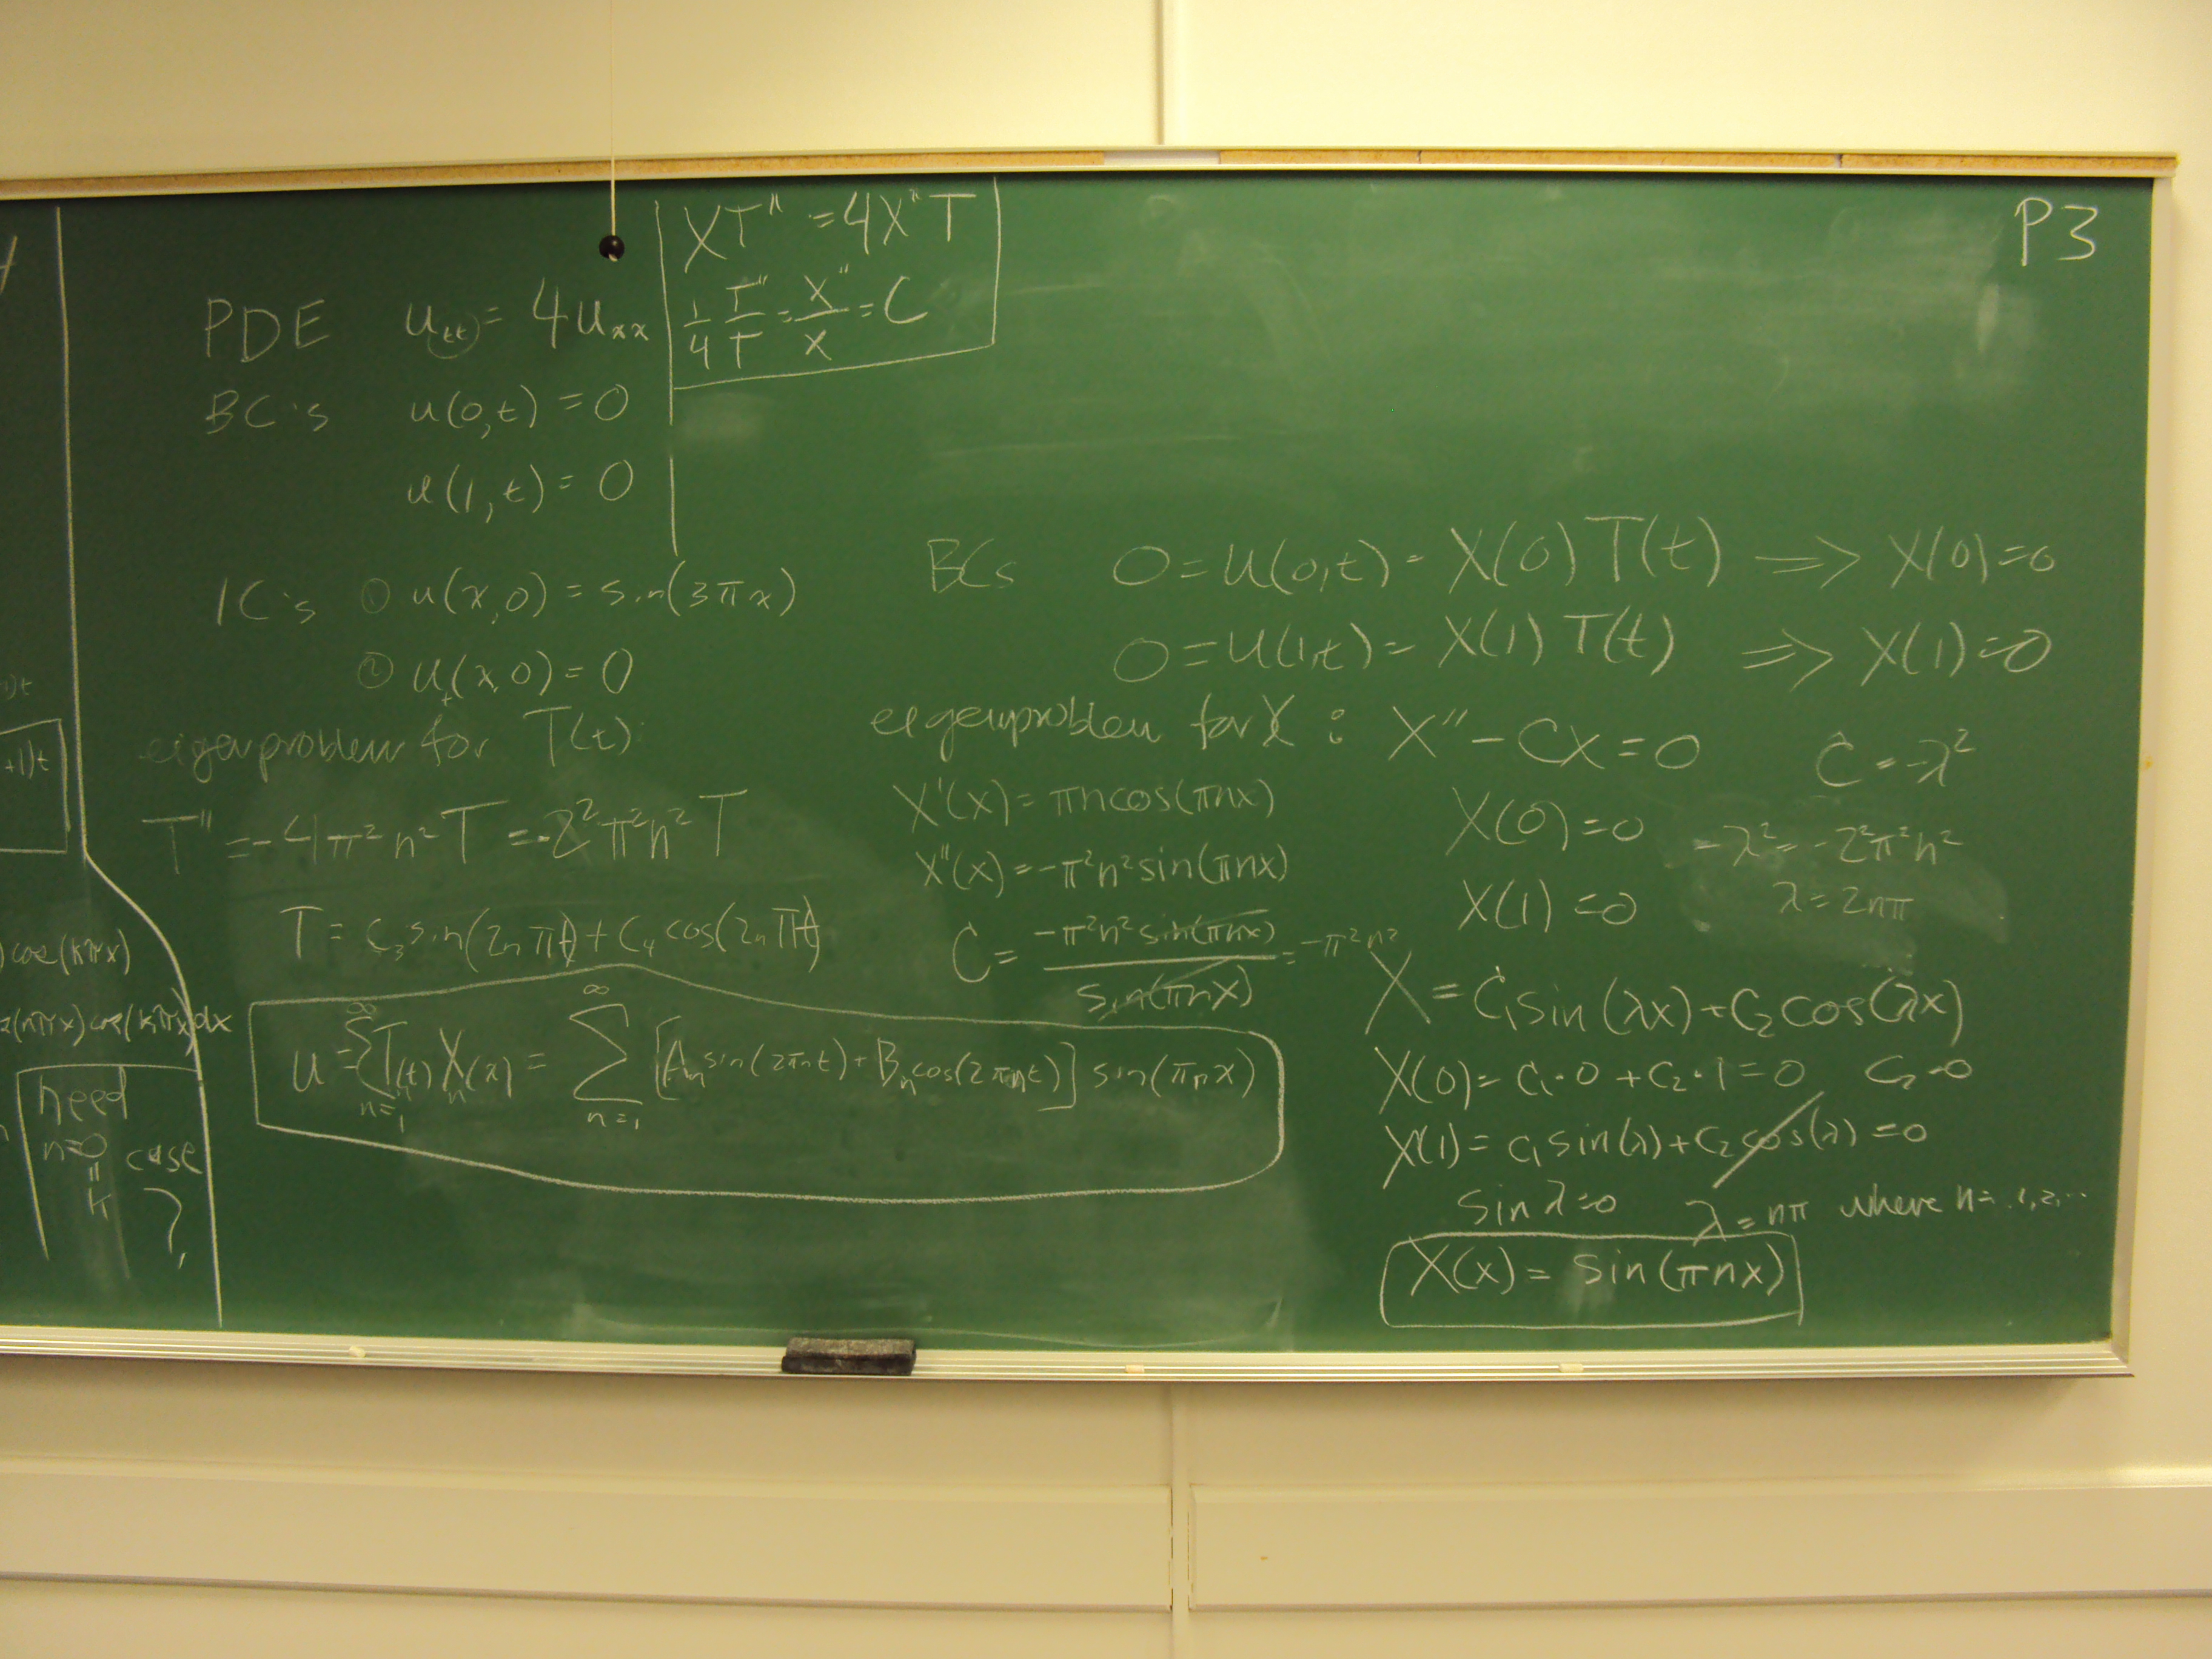 P3
XT'' = 4X''T
1/4 T''/T = X''/X = C
PDE u_tt = 4u_xx
BC's u(0,t) = 0
u(1,t) = 0
IC's ① u(x,0) = sin(3πx)
② u_t(x,0) = 0
eigenproblem for T(t):
T'' = -4π²n²T = -2²π²n²T
T = c₃sin(2nπt) + c₄cos(2nπt)
u = ∑_{n=1}^∞ T_n(t) X_n(x) = ∑_{n=1}^∞ [A_n sin(2πnt) + B_n cos(2πnt)] sin(πnx)
BCs 0 = u(0,t) = X(0)T(t) ⇒ X(0)=0
0 = u(1,t) = X(1)T(t) ⇒ X(1)=0
eigenproblem for X : X'' - CX = 0 C = -λ²
X'(x) = πncos(πnx)
X''(x) = -π²n²sin(πnx)
C = -π²n²sin(πnx)/sin(πnx) = -π²n²
X(0)=0 -λ² = -2²π²n²
X(1)=0 λ = 2nπ
X = C₁sin(λx) + C₂cos(λx)
X(0) = C₁·0 + C₂·1 = 0 C₂=0
X(1) = C₁sin(λ) + C₂cos(λ) = 0
sin λ = 0 λ = nπ where n = 1,2,...
X(x) = sin(πnx)
+1)t
)cos(kπx)
(nπx)cos(kπx)dx
need
n=0 case
=
k ?